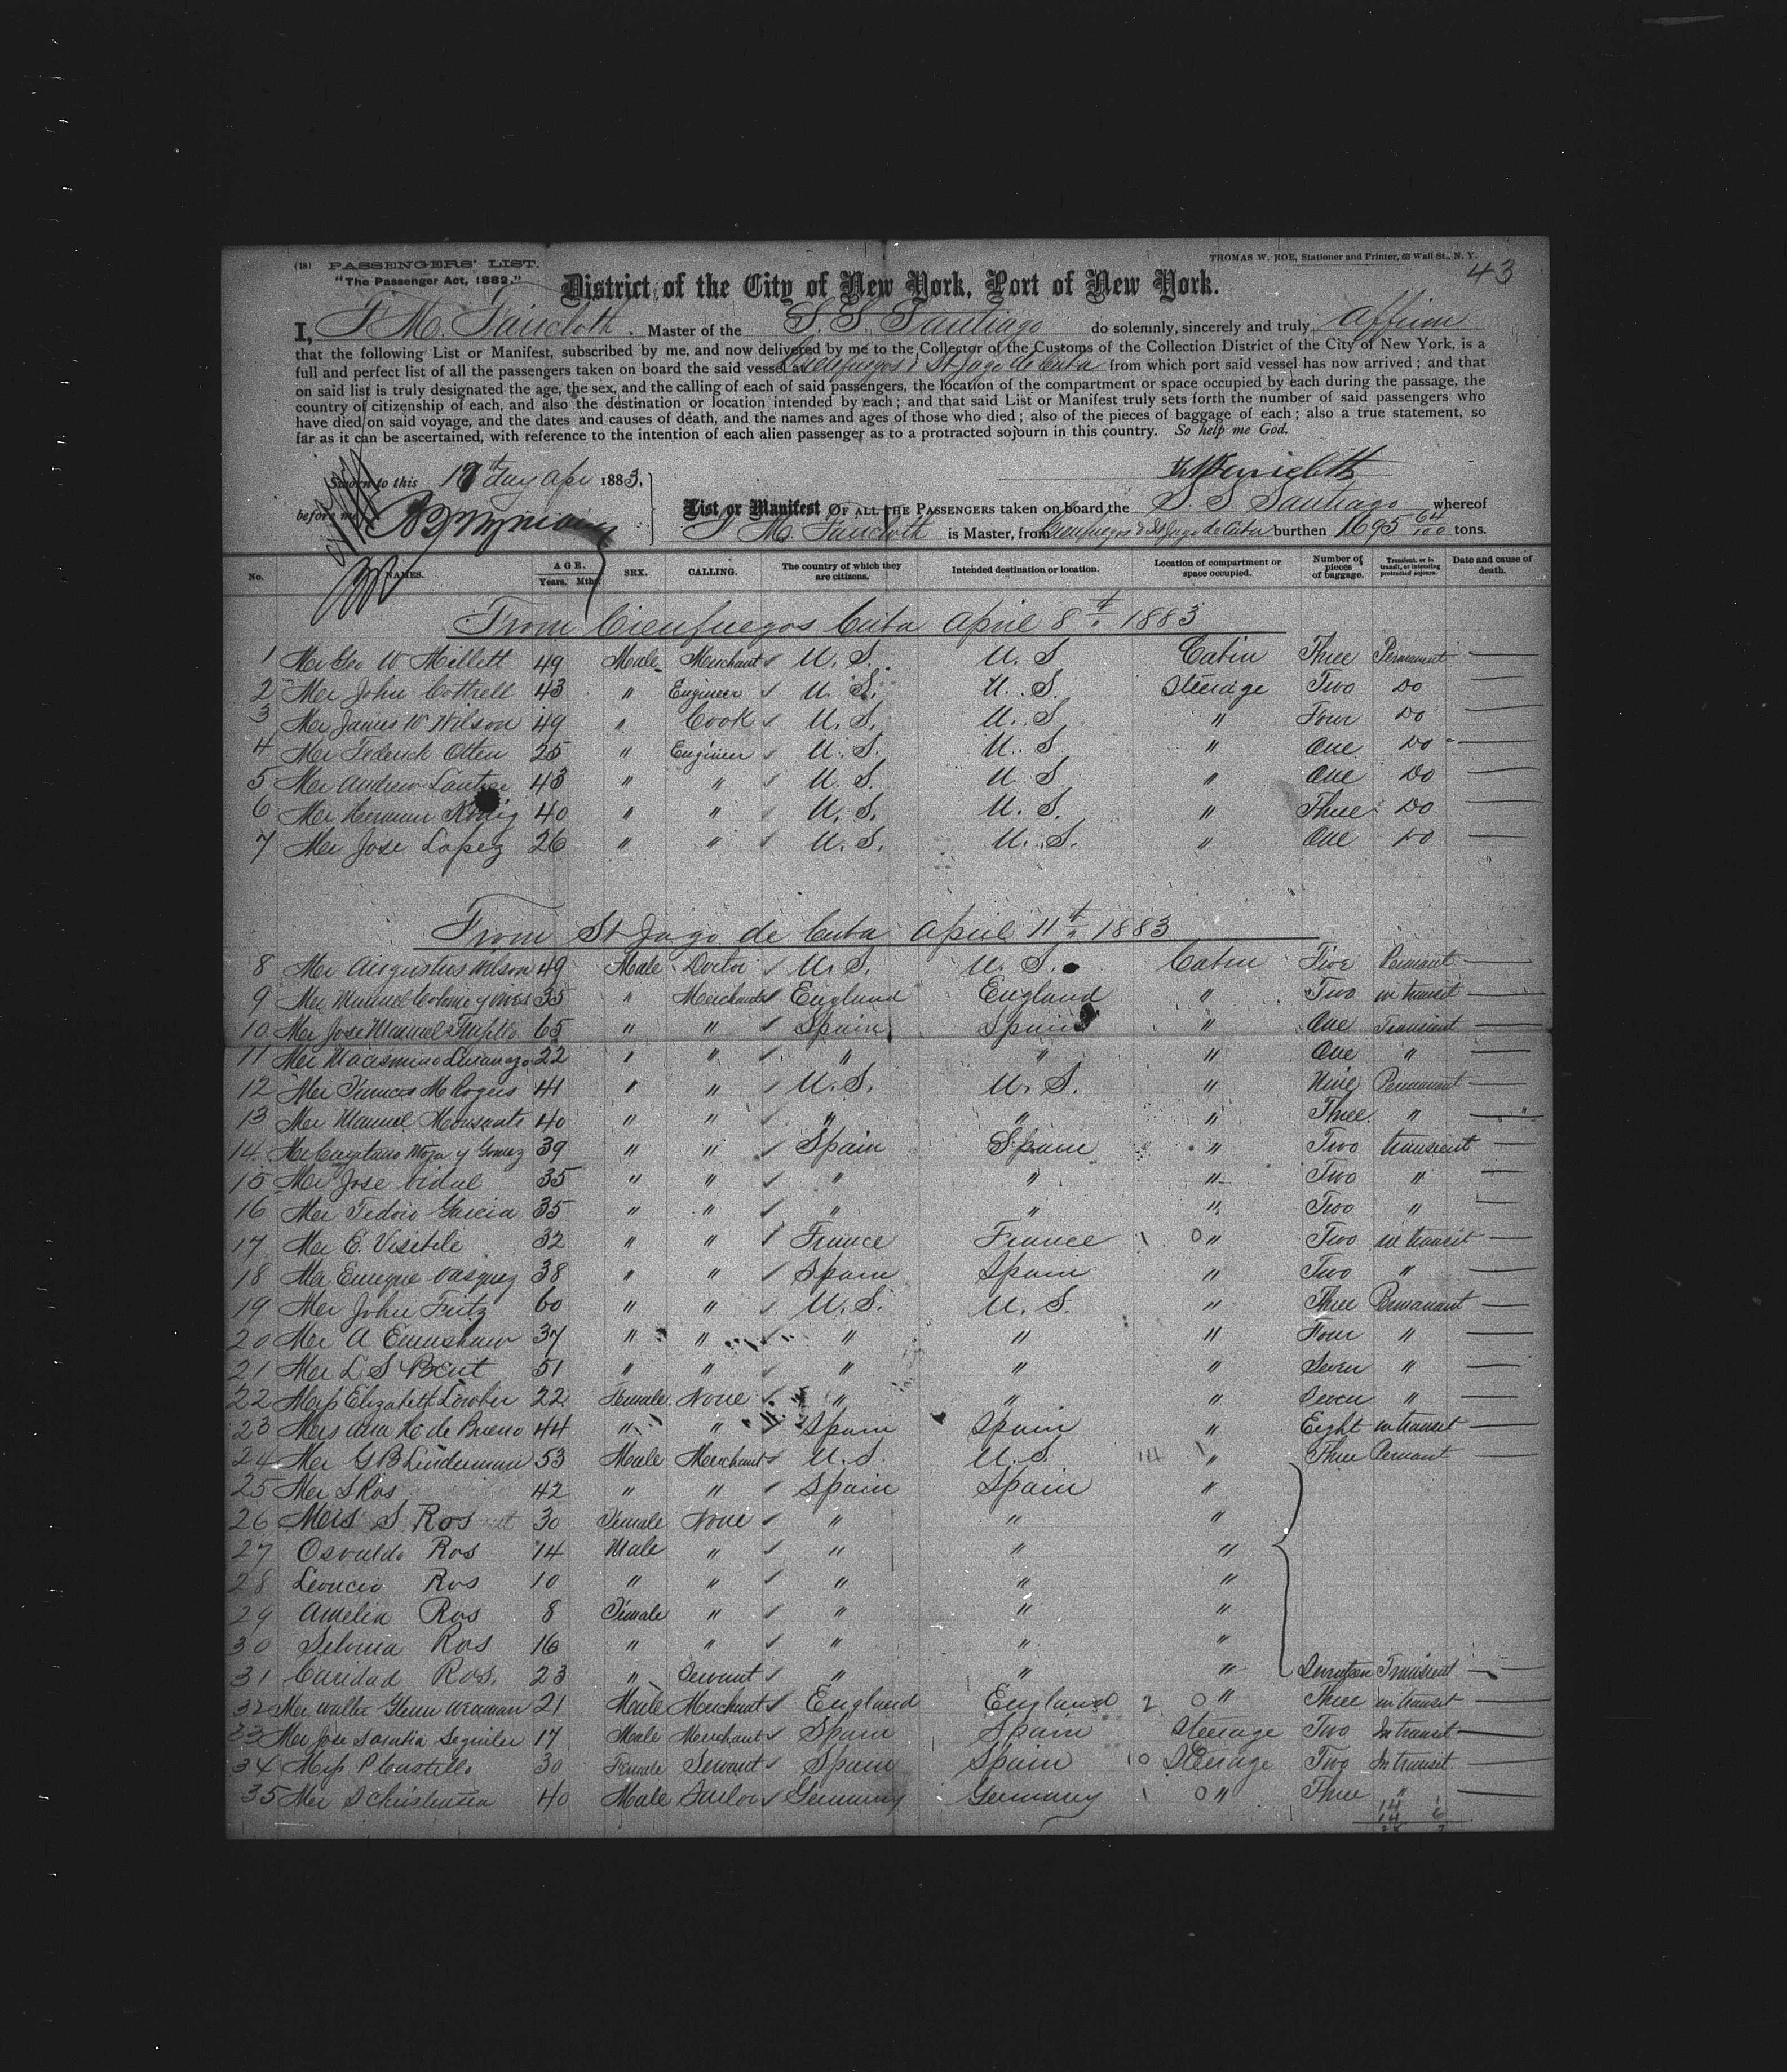 (18) PASSENGERS' LIST.
"The Passenger Act, 1882."
THOMAS W. ROE, Stationer and Printer, 63 Wall St., N. Y.
43
District of the City of New York, Port of New York.
I, F M. Faircloth. Master of the S. S. Santiago do solemnly, sincerely and truly affirm
that the following List or Manifest, subscribed by me, and now delivered by me to the Collector of the Customs of the Collection District of the City of New York, is a
full and perfect list of all the passengers taken on board the said vessel at Cienfuegos & St Jago de Cuba from which port said vessel has now arrived; and that
on said list is truly designated the age, the sex, and the calling of each of said passengers, the location of the compartment or space occupied by each during the passage, the
country of citizenship of each, and also the destination or location intended by each; and that said List or Manifest truly sets forth the number of said passengers who
have died on said voyage, and the dates and causes of death, and the names and ages of those who died; also of the pieces of baggage of each; also a true statement, so
far as it can be ascertained, with reference to the intention of each alien passenger as to a protracted sojourn in this country. So help me God.
Sworn to this 17th day Apr 1883,
before me
List or Manifest OF ALL THE PASSENGERS taken on board the S. S Santiago whereof
F M. Faircloth is Master, from Cienfuegos & St Jago de Cuba burthen 1695 64/100 tons.
No. NAMES. AGE. Years. Mths. SEX. CALLING. The country of which they are citizens. Intended destination or location. Location of compartment or space occupied. Number of pieces of baggage. Transient, or in transit, or intending protracted sojourn. Date and cause of death.
From Cienfuegos Cuba April 8th 1883
1 Mr Geo W Millett 49 Male Merchant U. S. U. S Cabin Three Permanent
2 Mr John Cottrell 43 " Engineer U. S. U. S. Steerage Two Do
3 Mr James W Wilson 49 " Cook U. S. U. S. " Four Do
4 Mr Federick Otten 25 " Engineer U. S. U. S " One Do
5 Mr Andrew 43 " " U. S. U. S " One Do
6 Mr Herman König 40 " " U. S. U. S. " Three Do
7 Mr Jose Lopez 26 " " U. S. U. S. " One Do
From St Jago de Cuba April 11th 1883
8 Mr Augustus Wilson 49 Male Doctor U. S. U. S. Cabin Five Permant
9 Mr Manuel y Vives 35 " Merchant England England " Two in transit
10 Mr Jose Manuel Trujillo 65 " " Spain Spain " One Transient
11 Mr 22 " " " " " One "
12 Mr Frances M Rogers 41 " " U. S. U. S. " Nine Permanant
13 Mr Manuel 40 " " " " " Three "
14 Mr Cayetano Moya y Gomez 39 " " Spain Spain " Two transient
15 Mr Jose Vidal 35 " " " " " Two "
16 Mr Garcia 35 " " " " " Two "
17 Mr E. 32 " " France France 1 0 " Two in transit
18 Mr Enrique Vasquez 38 " " Spain Spain " Two "
19 Mr John Fritz 60 " " U. S. U. S. " Three Permanant
20 Mr A Earnshaw 37 " " " " " Four "
21 Mr L S Bent 51 " " " " " Seven "
22 Miss Elizabeth Lowber 22 Female None " " " Seven "
23 Mrs Ana de Bueno 44 " " Spain Spain " Eight in transit
24 Mr G B Linderman 53 Male Merchant U. S. U. S. " Three Permant
25 Mr S Ros 42 " " Spain Spain "
26 Mrs S Ros 30 Female None " " "
27 Osvaldo Ros 14 Male " " " "
28 Leoncio Ros 10 " " " " "
29 Amelia Ros 8 Female " " " "
30 Ros 16 " " " " "
31 Caridad Ros. 23 " Servant " " " Seventeen Transient
32 Mr Walter Glenn 21 Male Merchant England England 2 0 " Three in transit
33 Mr Jose 17 Male Merchant Spain Spain Steerage Two In transit
34 Miss P Castillo 30 Female Servant Spain Spain 10 Steerage Two In transit
35 Mr 40 Male Sailor Germany Germany 1 0 " Three "